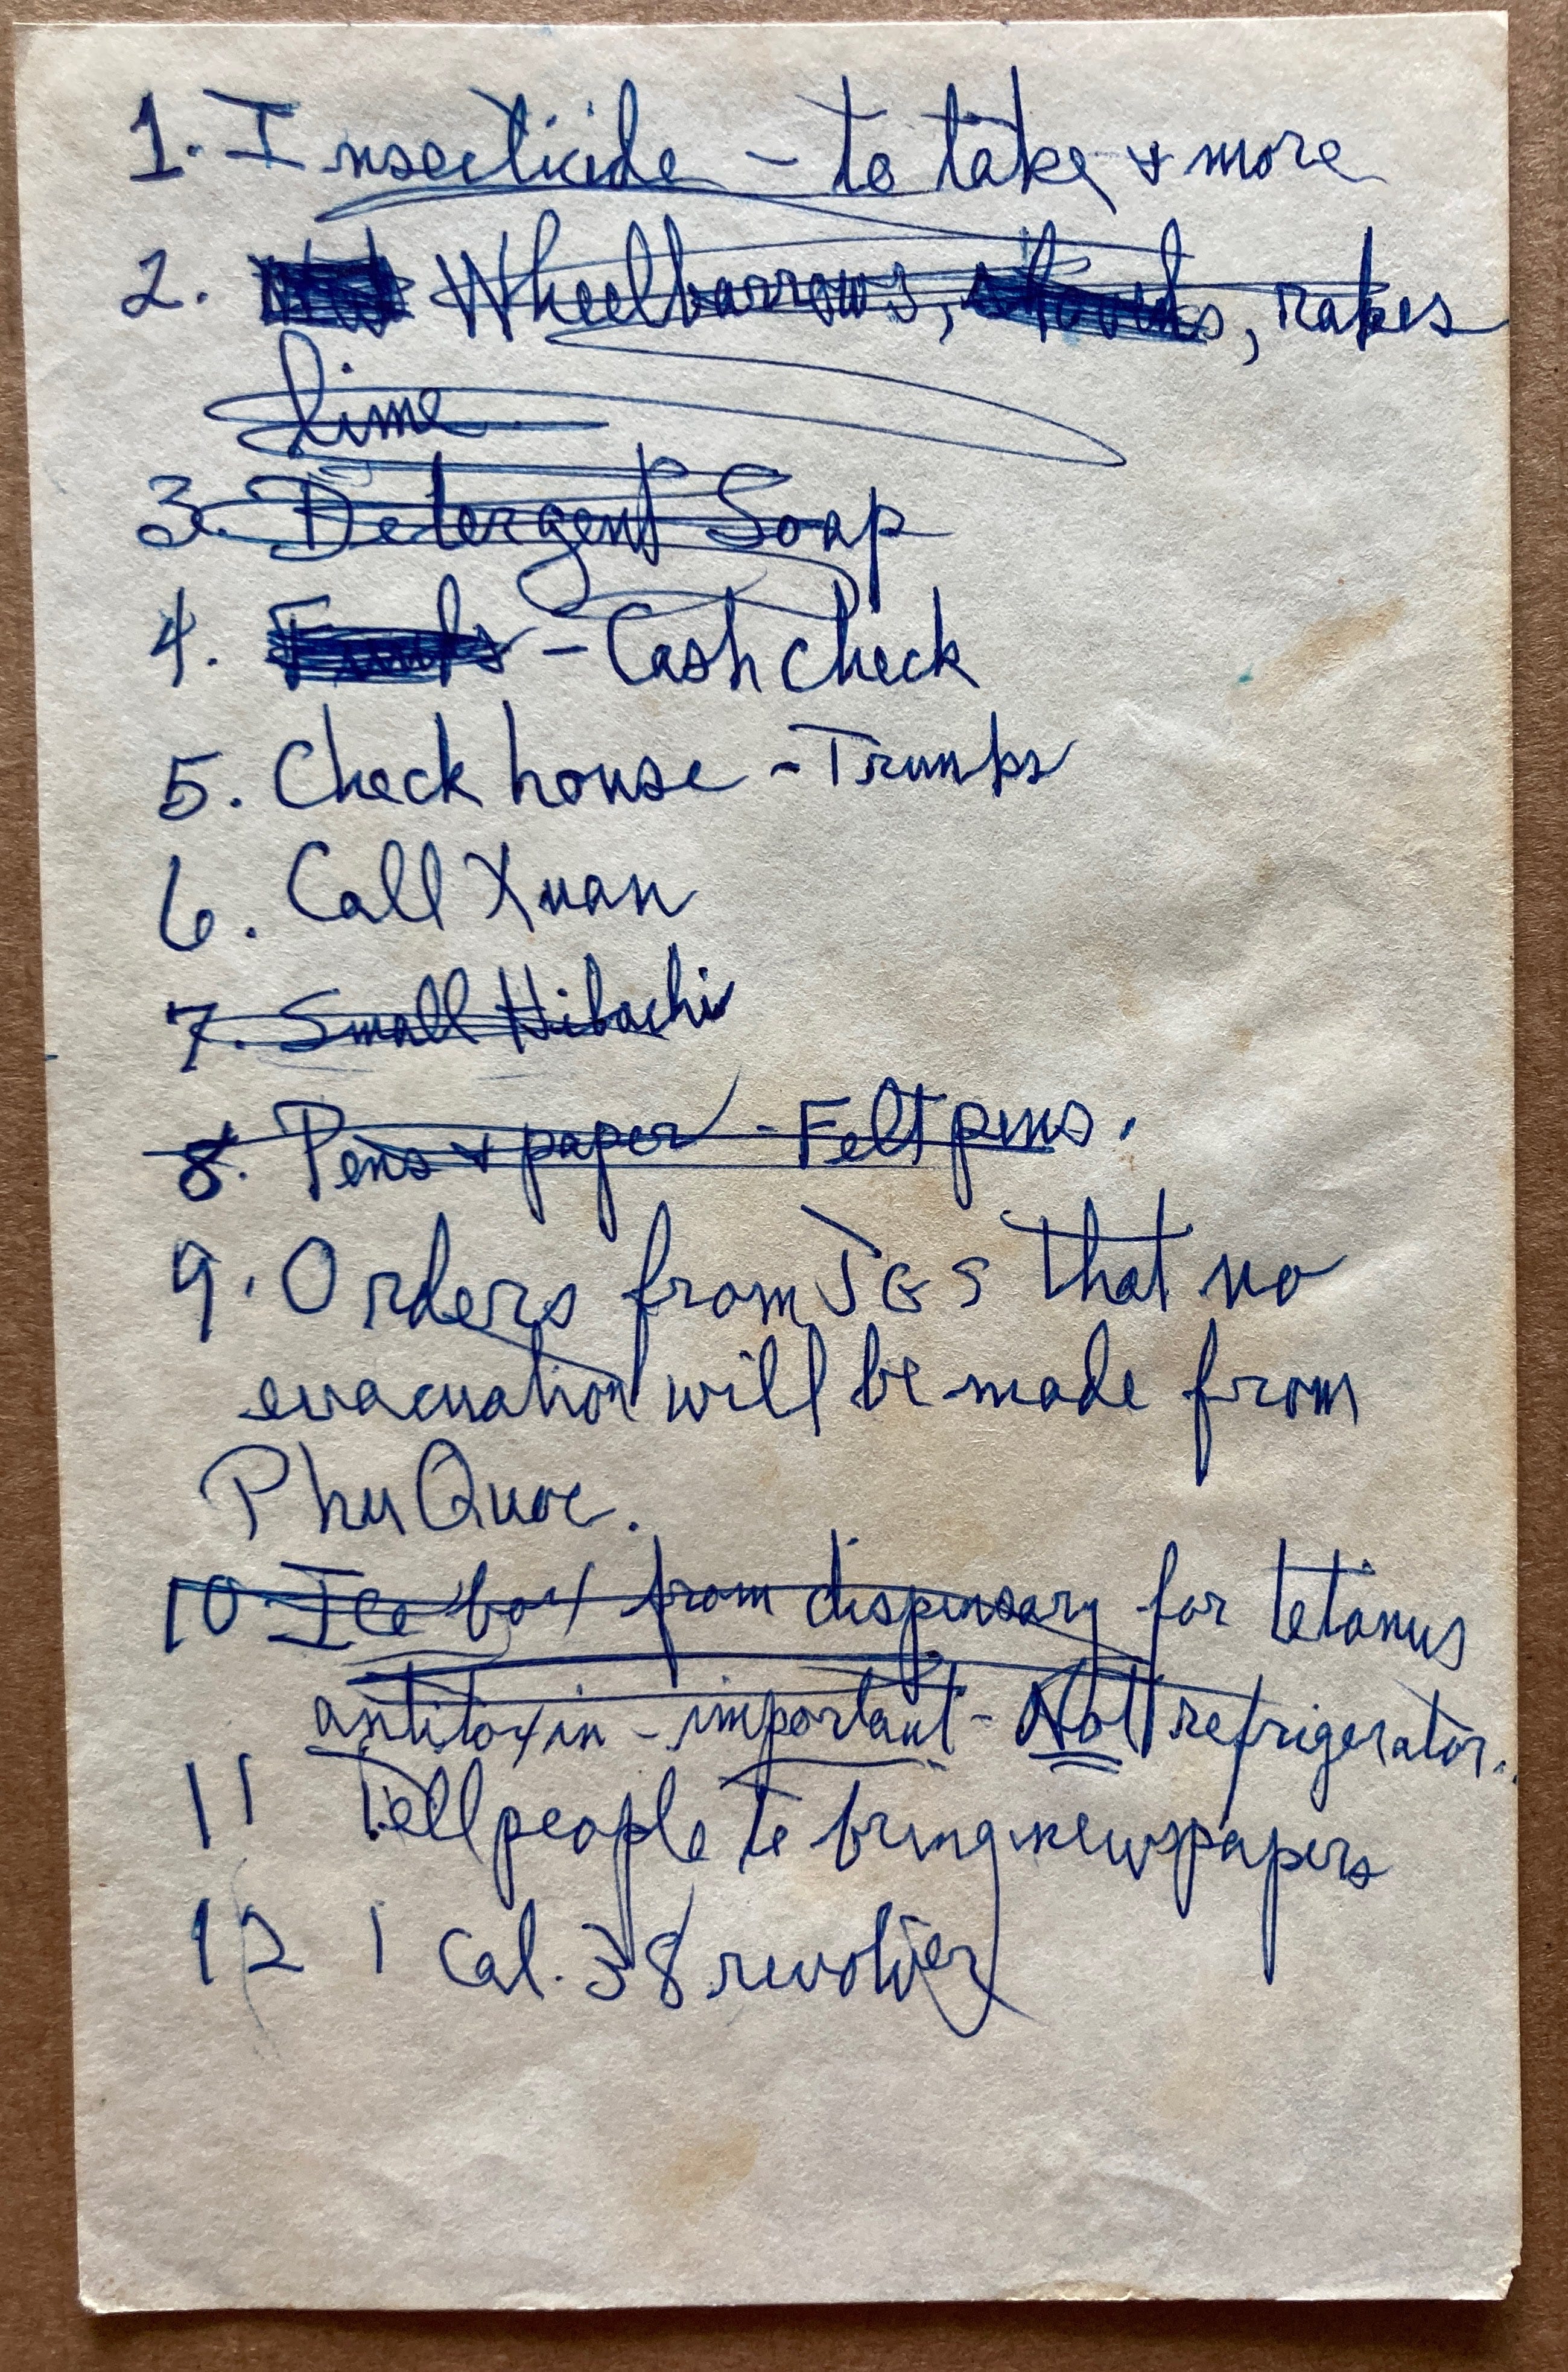 1. Insecticide - to take & more
2. Wheelbarrows, shovels, rakes
lime
3. Detergent Soap
4. - Cash check
5. Check house - Trunks
6. Call Xuan
7. Small Hibachi
8. Pens & paper - Felt pens.
9. Orders from JGS that no
evacuation will be made from
Phu Quoc.
10 Ice box from dispensary for tetanus
antitoxin - important - Not refrigerator.
11 Tell people to bring newspapers
12 1 Cal. 38 revolver